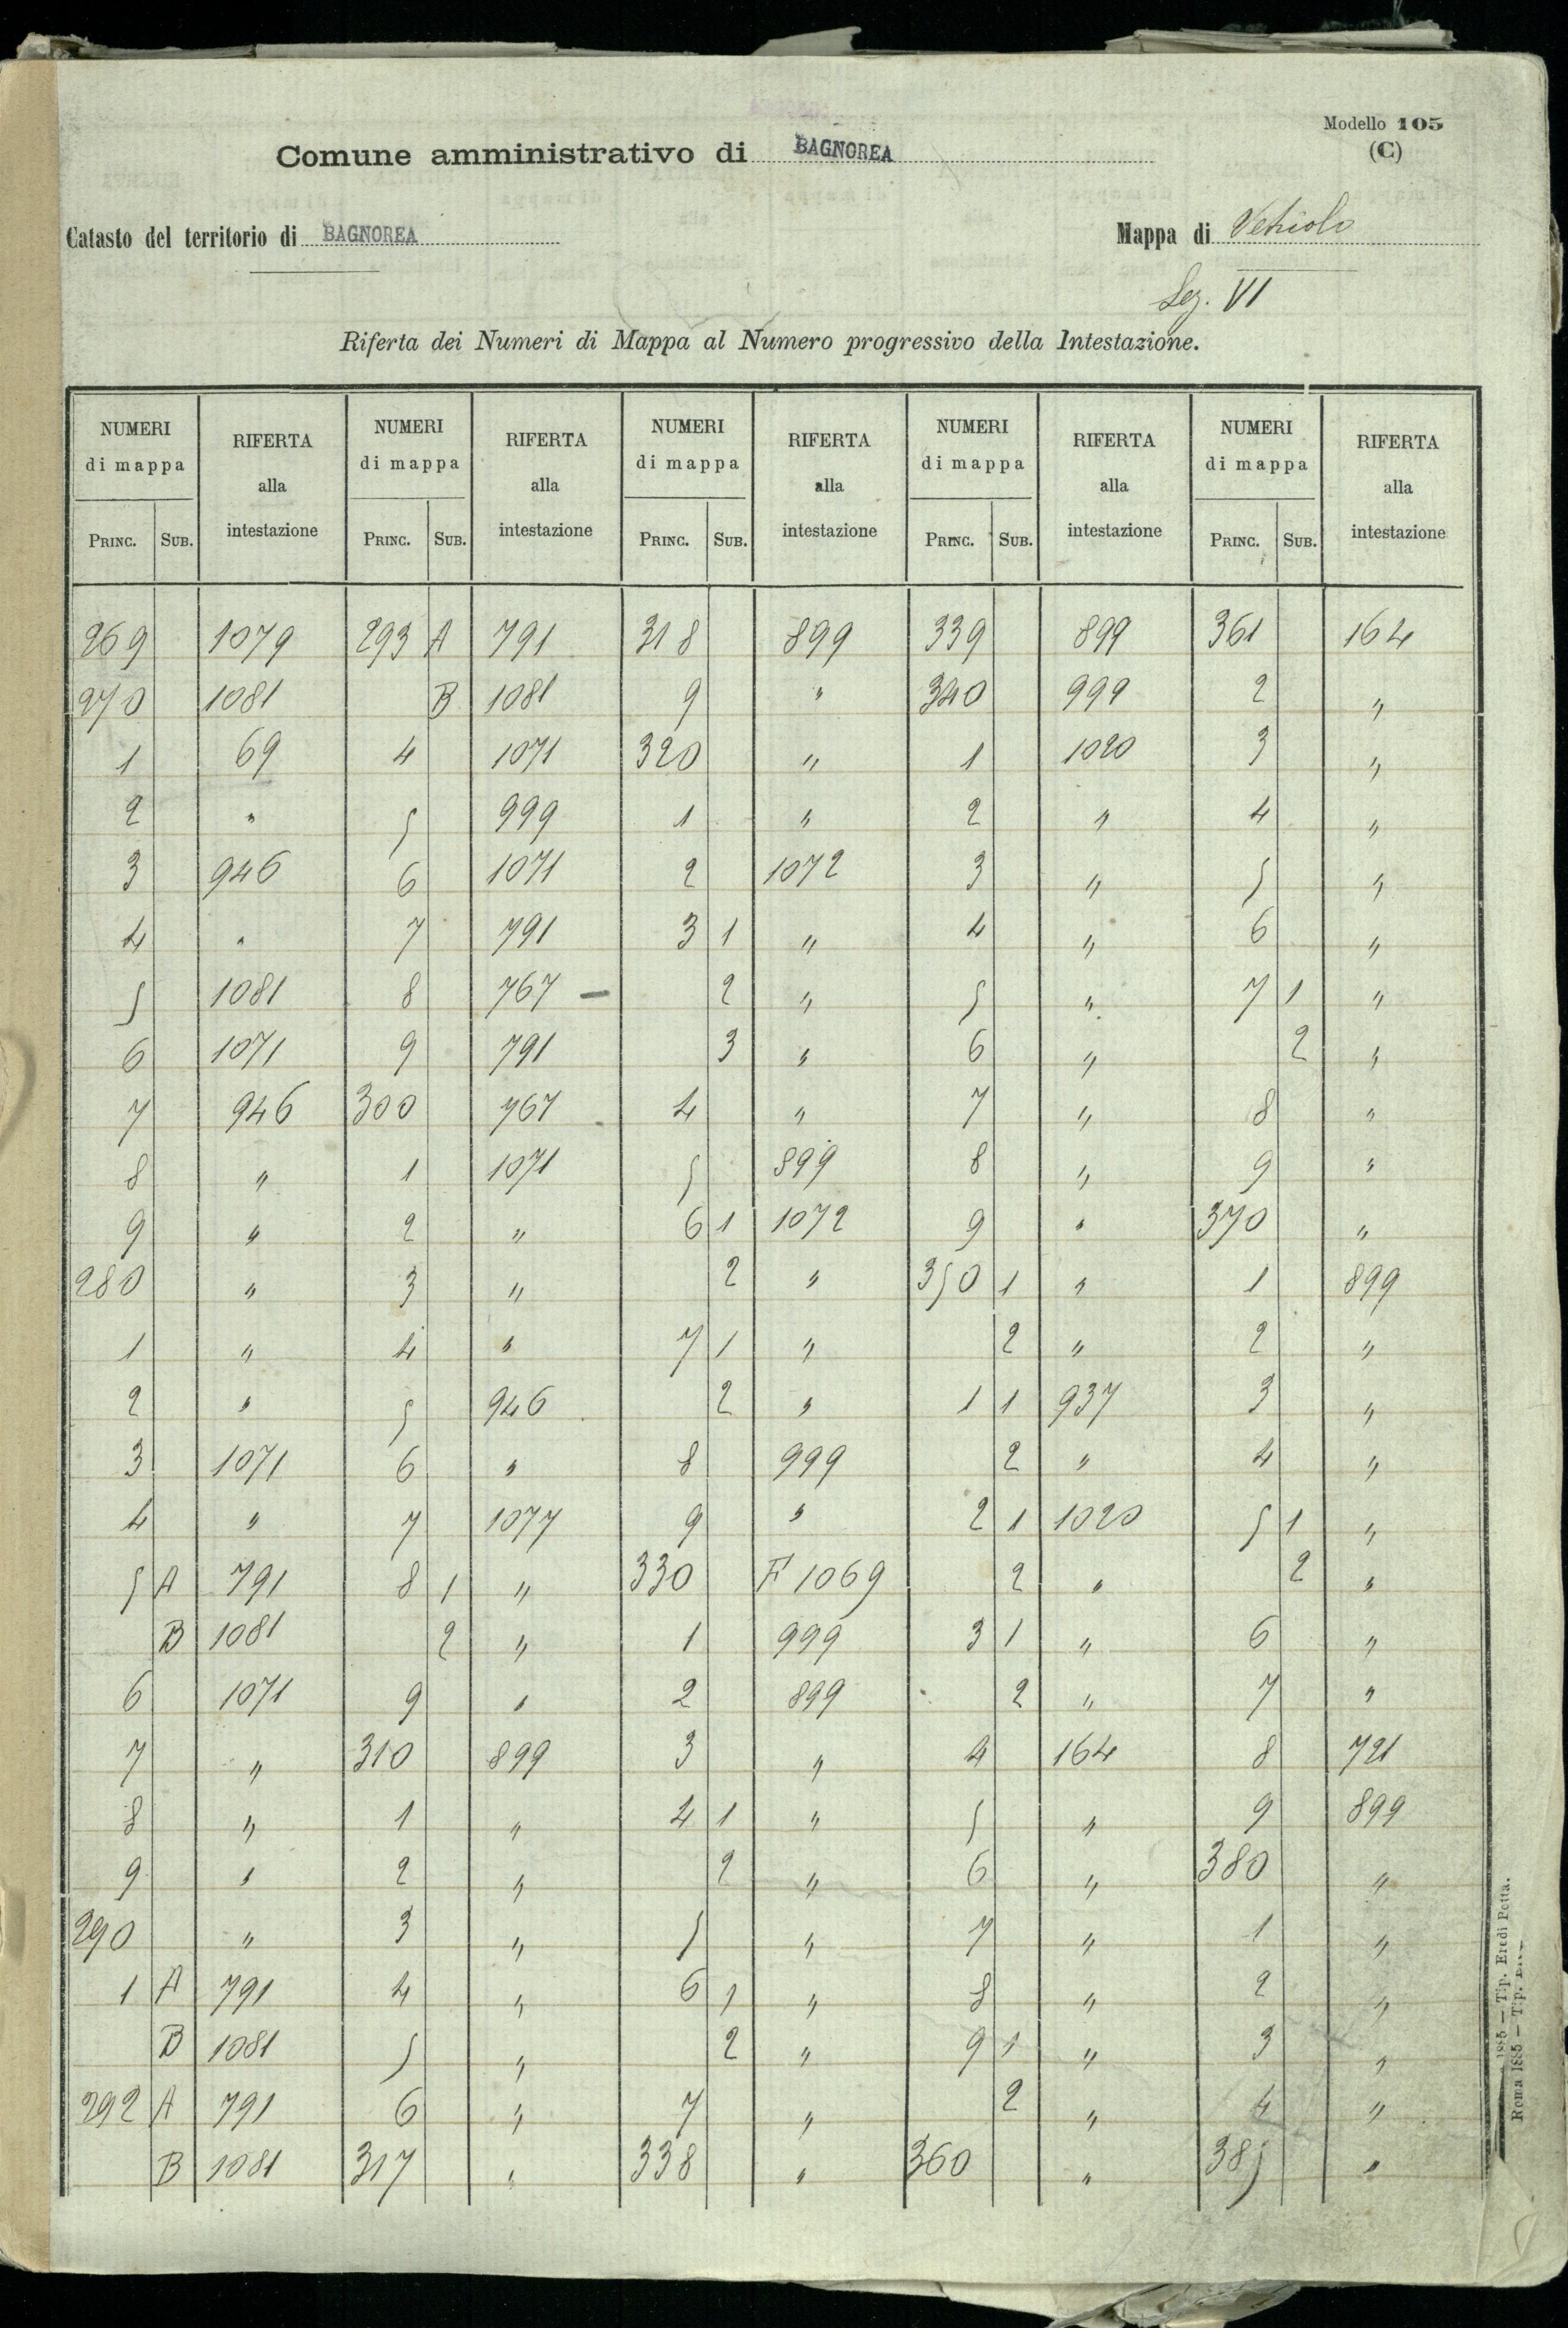 Modello 105
(C)
Comune amministrativo di BAGNOREA
Catasto del territorio di BAGNOREA Mappa di Vetriolo
Sez. VI
Riferta dei Numeri di Mappa al Numero progressivo della Intestazione.
NUMERI NUMERI NUMERI NUMERI NUMERI
RIFERTA RIFERTA RIFERTA RIFERTA RIFERTA
di mappa di mappa di mappa di mappa di mappa
alla alla alla alla alla
intestazione intestazione intestazione intestazione intestazione
PRINC. SUB. PRINC. SUB. PRINC. SUB. PRINC. SUB. PRINC. SUB.
269 1079 293 A 791 318 899 339 899 361 164
270 1081 B 1081 9 " 340 999 2 "
1 69 4 1071 320 " 1 1020 3 "
2 " 5 999 1 " 2 " 4 "
3 946 6 1071 2 1072 3 " 5 "
4 " 7 791 3 1 " 4 " 6 "
5 1081 8 767 — 2 " 5 " 7 1 "
6 1071 9 791 3 " 6 " 2 "
7 946 300 767 4 " 7 " 8 "
8 " 1 1071 5 899 8 " 9 "
9 " 2 " 6 1 1072 9 " 370 "
280 " 3 " 2 " 350 1 " 1 899
1 " 4 " 7 1 " 2 " 2 "
2 " 5 946 2 " 1 1 937 3 "
3 1071 6 " 8 999 2 " 4 "
4 " 7 1077 9 " 2 1 1020 5 1 "
5 A 791 8 1 " 330 F 1069 2 " 2 "
B 1081 2 " 1 999 3 1 " 6 "
6 1071 9 " 2 899 2 " 7 "
7 " 310 899 3 " 4 164 8 721
8 " 1 " 4 1 " 5 " 9 899
9 " 2 " 2 " 6 " 380 "
290 " 3 " 5 " 7 " 1 "
1 A 791 4 " 6 1 " 8 " 2 "
B 1081 5 " 2 " 9 1 " 3 "
292 A 791 6 " 7 " 2 " 4 "
B 1081 317 " 338 " 360 " 385 "
1885 — Tip. Eredi Botta.
Roma 1885 — Tip.